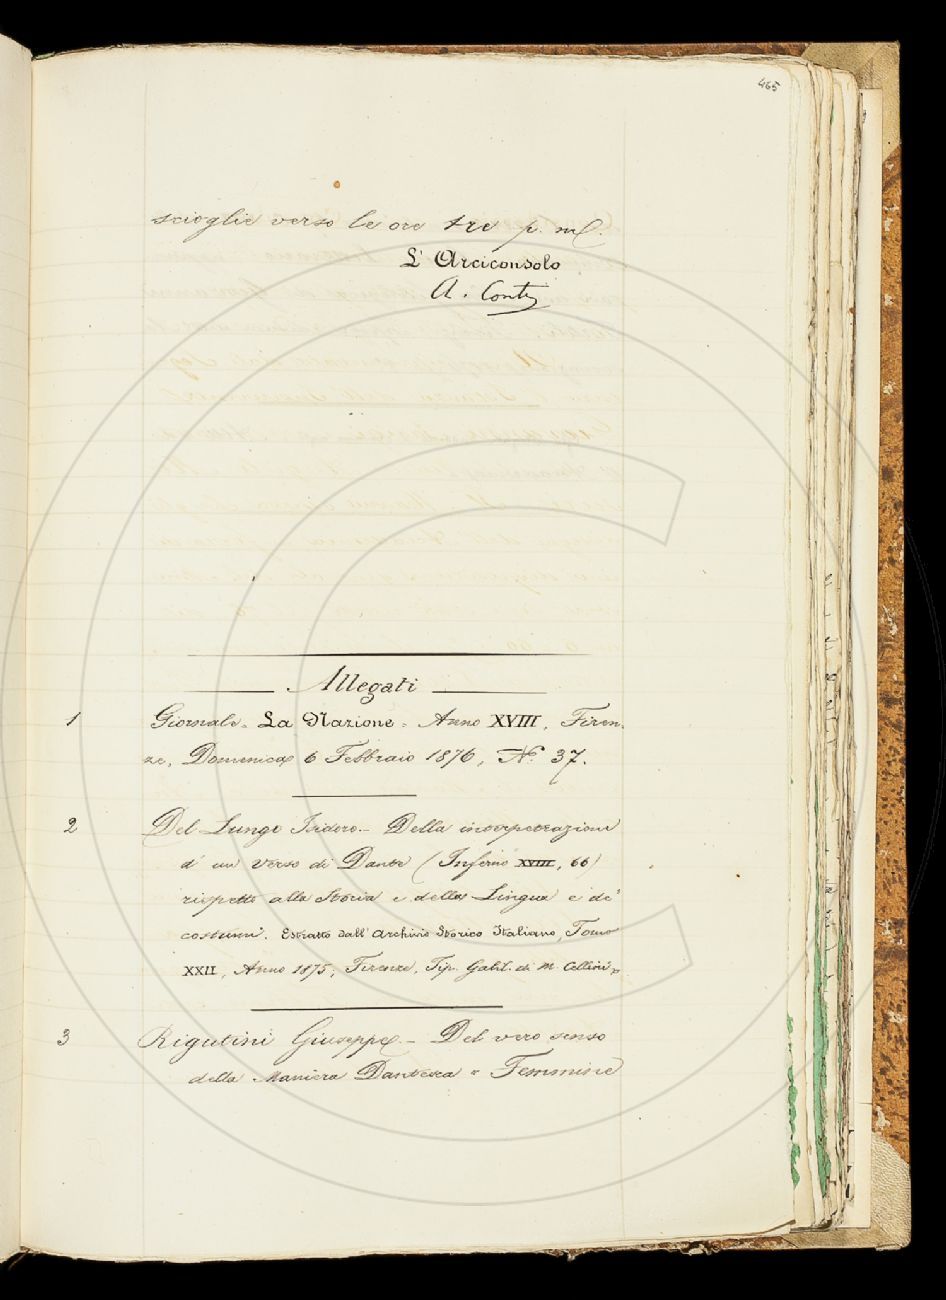 465
scioglie verso le ore tre p. m.
L' Arciconsolo
A. Conti
Allegati
1 Giornale. La Nazione. Anno XVIII, Firen-
ze, Domenica 6 Febbraio 1876, N.° 37.
2 Del Lungo Isidoro. - Della interpetrazione
d' un verso di Dante (Inferno XVIII, 66)
rispetto alla Storia e della Lingua e de'
costumi. Estratto dall' Archivio Storico Italiano, Tomo
XXII, Anno 1875, Firenze, Tip. Galil. di M. Cellini
3 Rigutini Giuseppe. - Del vero senso
della Maniera Dantesca " Femmine